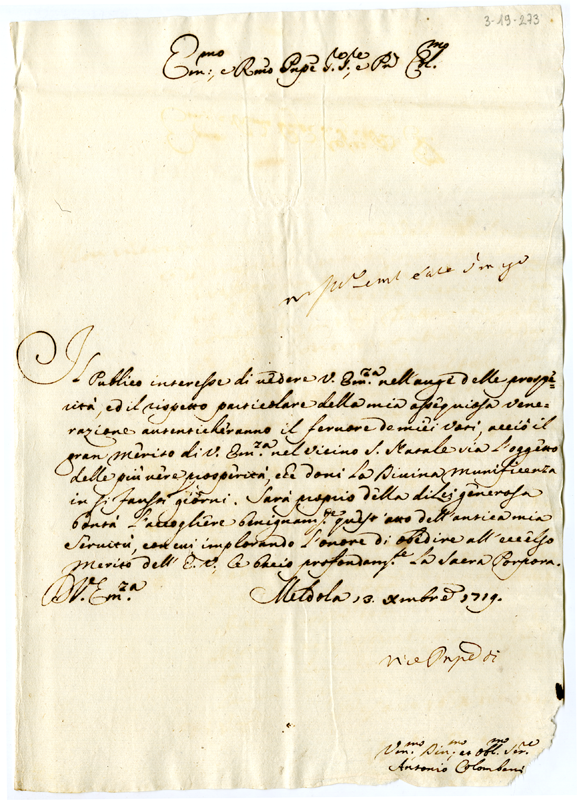 3-19-273
Em.mo, e Rmo Pnpe
Il Publico interesse di vedere V. Em.za nell'auge delle prospe=
rità, ed il rispetto particolare della mia assequiosa vene=
razione autenticheranno il fervore de miei Voti, acciò il
gran merito di V. Em.za nel vicino S. Natale sia l'oggetto
delle più vere prosperità, che doni la Divina munificenza
in sì fausti giorni. Sarà proprio della di Lei generosa
bontà l'accogliere benignam.te quest'atto dell'antica mia
servitù, con cui implorando l'onore di obedire all'eccelso
merito dell'E.V., le bacio profondam.te la Sacra Porpora.
D V.Em.za Meldola 13. Xmbre 1719.
Vice Pnpe di
Um.mo Div.mo et Obl.mo Ser.e
Antonio Colombani